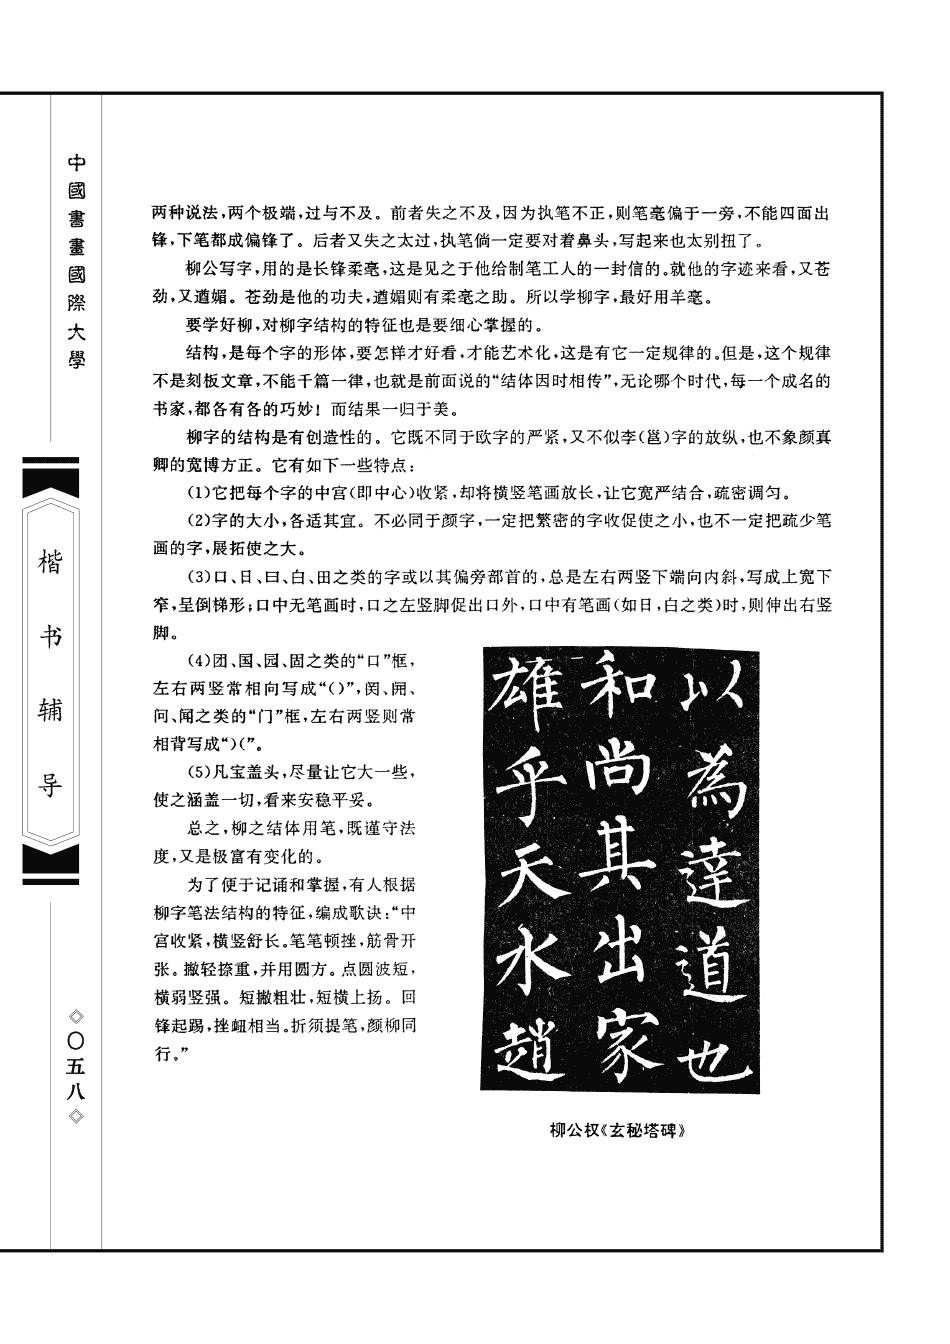 中國書畫國際大學
楷书辅导
◇〇五八◇
两种说法,两个极端,过与不及。前者失之不及,因为执笔不正,则笔毫偏于一旁,不能四面出
锋,下笔都成偏锋了。后者又失之太过,执笔倘一定要对着鼻头,写起来也太别扭了。
柳公写字,用的是长锋柔毫,这是见之于他给制笔工人的一封信的。就他的字迹来看,又苍
劲,又遒媚。苍劲是他的功夫,遒媚则有柔毫之助。所以学柳字,最好用羊毫。
要学好柳,对柳字结构的特征也是要细心掌握的。
结构,是每个字的形体,要怎样才好看,才能艺术化,这是有它一定规律的。但是,这个规律
不是刻板文章,不能千篇一律,也就是前面说的“结体因时相传”,无论哪个时代,每一个成名的
书家,都各有各的巧妙!而结果一归于美。
柳字的结构是有创造性的。它既不同于欧字的严紧,又不似李(邕)字的放纵,也不象颜真
卿的宽博方正。它有如下一些特点:
(1)它把每个字的中宫(即中心)收紧,却将横竖笔画放长,让它宽严结合,疏密调匀。
(2)字的大小,各适其宜。不必同于颜字,一定把繁密的字收促使之小,也不一定把疏少笔
画的字,展拓使之大。
(3)口、日、曰、白、田之类的字或以其偏旁部首的,总是左右两竖下端向内斜,写成上宽下
窄,呈倒梯形;口中无笔画时,口之左竖脚促出口外,口中有笔画(如日,白之类)时,则伸出右竖
脚。
(4)团、国、园、固之类的“口”框,
左右两竖常相向写成“()”,闵、闸、
问、闻之类的“门”框,左右两竖则常
相背写成“)(”。
(5)凡宝盖头,尽量让它大一些,
使之涵盖一切,看来安稳平妥。
总之,柳之结体用笔,既谨守法
度,又是极富有变化的。
为了便于记诵和掌握,有人根据
柳字笔法结构的特征,编成歌诀:“中
宫收紧,横竖舒长。笔笔顿挫,筋骨开
张。撇轻捺重,并用圆方。点圆波短,
横弱竖强。短撇粗壮,短横上扬。回
锋起踢,挫衄相当。折须提笔,颜柳同
行。”
以為達道也
和尚其出家
雄乎天水趙
柳公权《玄秘塔碑》